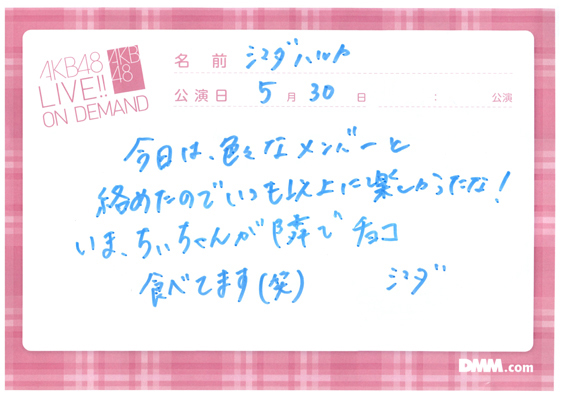 AKB48
LIVE!!
ON DEMAND
AKB
48
名前 シマダハルカ
公演日 5月30日 : 公演
今日は、色々なメンバーと
絡めたのでいつも以上に楽しかったな!
いま、ちぃちゃんが隣でチョコ
食べてます(笑) シマダ
DMM.com